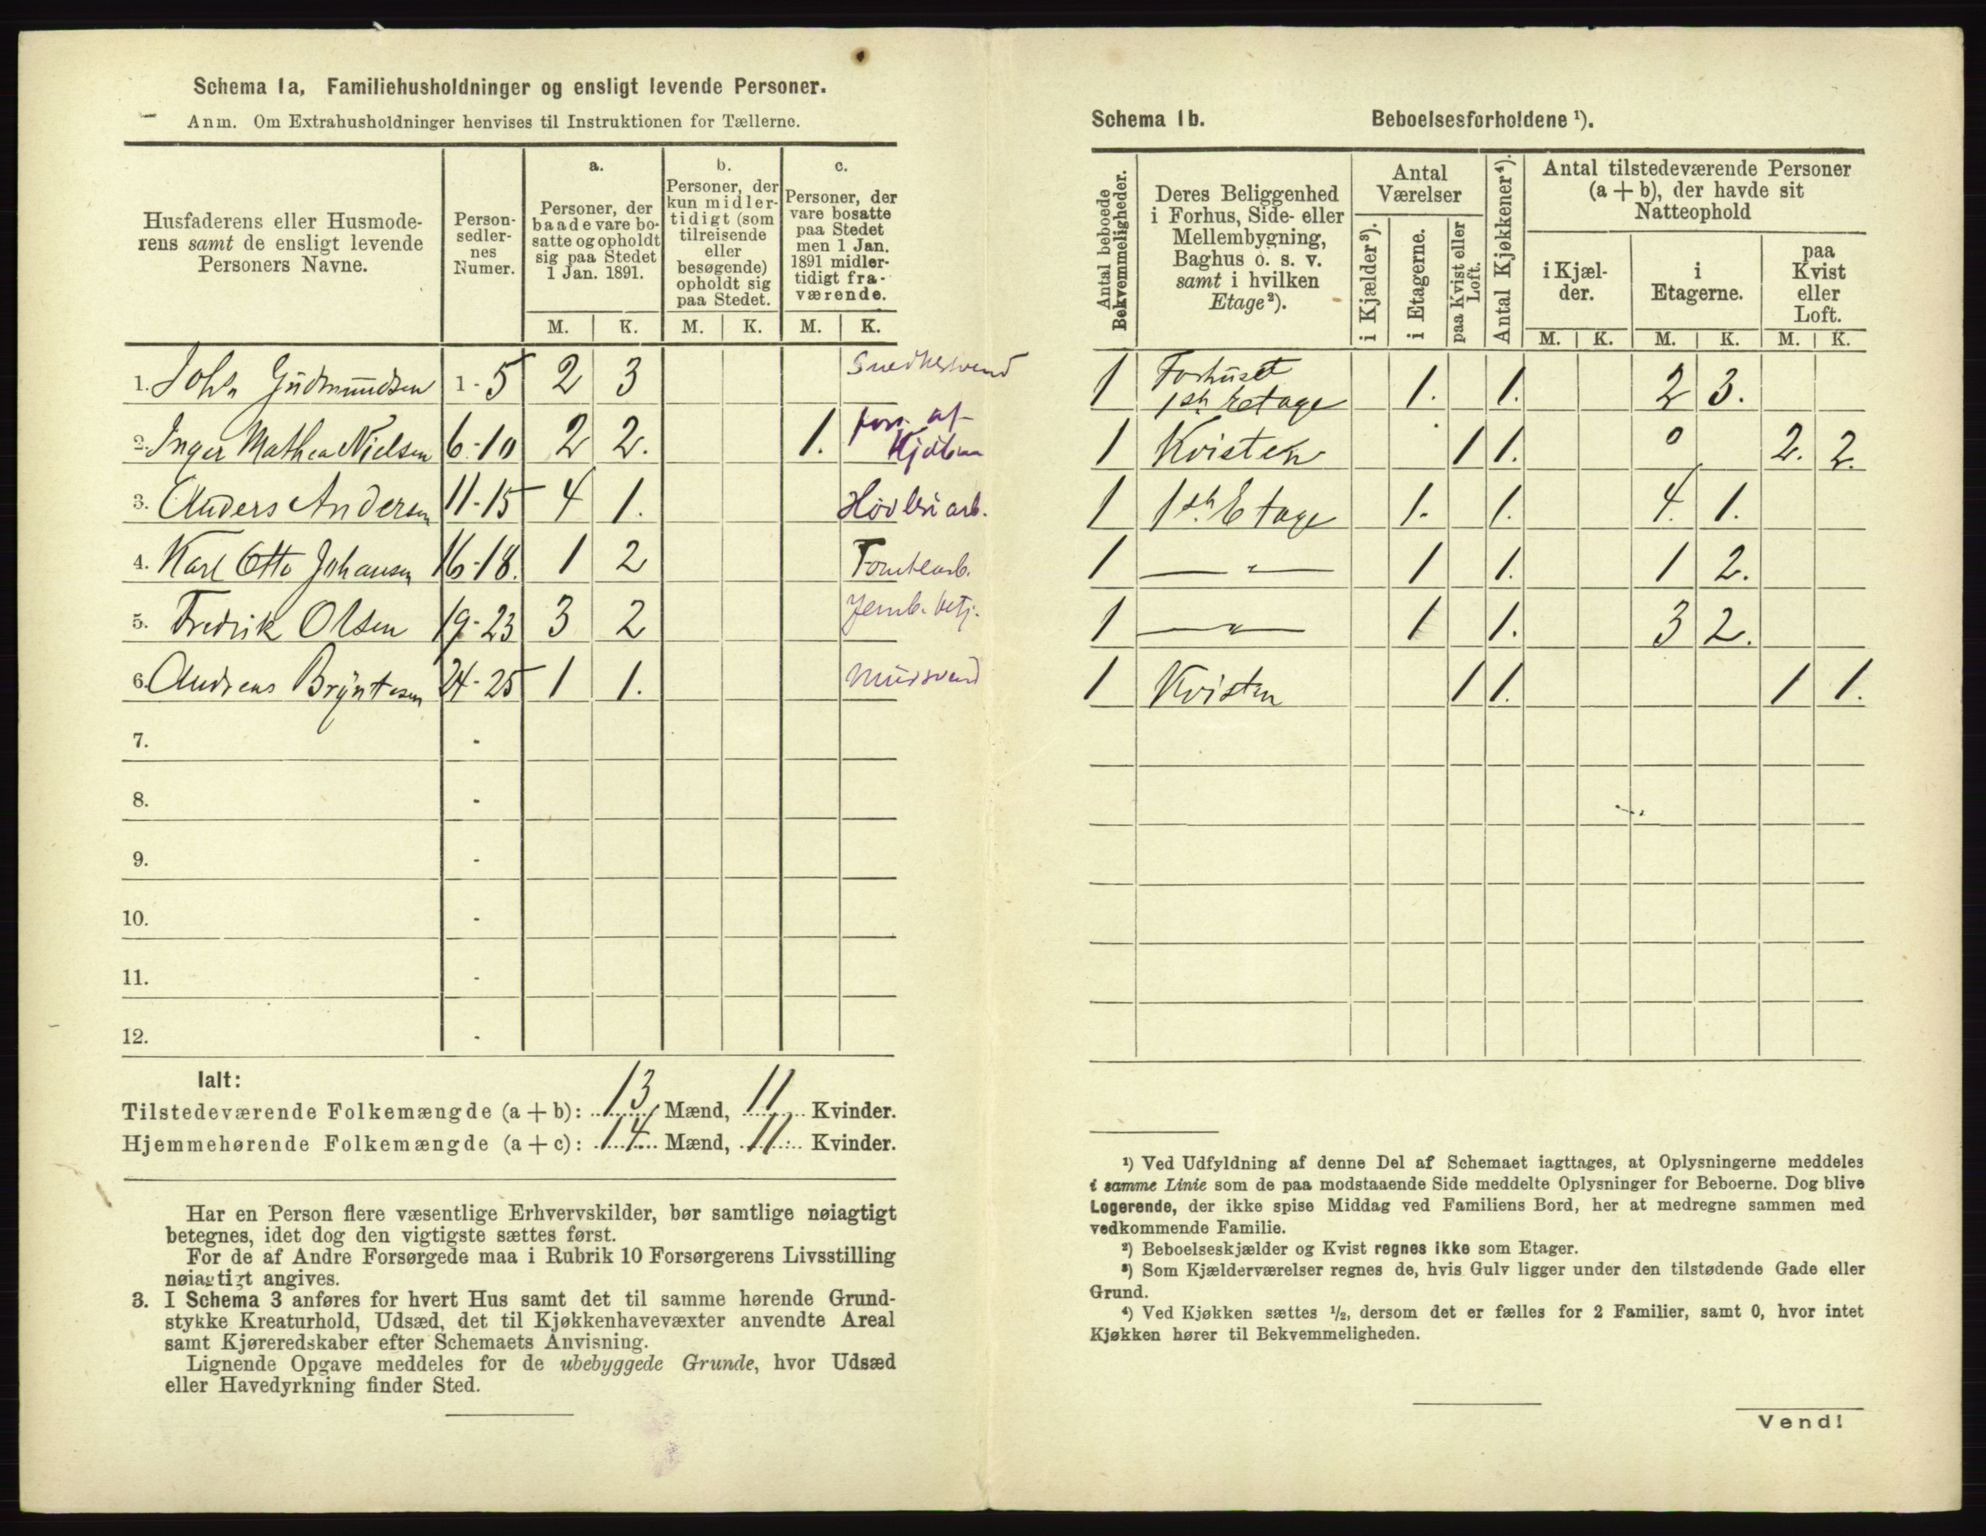 Schema 1a. Familiehusholdninger og ensligt levende Personer.
Anm. Om Extrahusholdninger henvises til Instruktionen for Tællerne.
Husfaderens eller Husmoderens samt de ensligt levende Personers Navne.
Personsedlernes Numer.
a. Personer, der baade vare bosatte og opholdt sig paa Stedet 1 Jan. 1891.
b. Personer, der kun midlertidigt (som tilreisende eller besøgende) opholdt sig paa Stedet.
c. Personer, der vare bosatte paa Stedet men 1 Jan. 1891 midlertidigt fraværende.
M. K. M. K. M. K.
1. John Gudmundsen 1-5 2 3 Snedkersvend
2. Inger Mathea Nielsen 6-10 2 2. 1. fors. af
3. Anders Andersen 11-15 4 1. Høvleriarb.
4. Karl Otto Johansen 16-18. 1 2 Tomtearb.
5. Fredrik Olsen 19-23 3 2 Jernb. betj.
6. Andreas Bryntesen 24-25 1 1. Mursvend
7. -
8. -
9. -
10. -
11. -
12. -
Ialt:
Tilstedeværende Folkemængde (a + b): 13 Mænd, 11 Kvinder.
Hjemmehørende Folkemængde (a + c): 14 Mænd, 11 Kvinder.
Har en Person flere væsentlige Erhvervskilder, bør samtlige nøiagtigt
betegnes, idet dog den vigtigste sættes først.
For de af Andre Forsørgede maa i Rubrik 10 Forsørgerens Livsstilling
nøiagtigt angives.
3. I Schema 3 anføres for hvert Hus samt det til samme hørende Grund-
stykke Kreaturhold, Udsæd, det til Kjøkkenhavevæxter anvendte Areal
samt Kjøreredskaber efter Schemaets Anvisning.
Lignende Opgave meddeles for de ubebyggede Grunde, hvor Udsæd
eller Havedyrkning finder Sted.
Schema 1b. Beboelsesforholdene ¹).
Antal beboede Bekvemmeligheder.
Deres Beliggenhed i Forhus, Side- eller Mellembygning, Baghus o. s. v. samt i hvilken Etage²).
Antal Værelser
i Kjælder³).
i Etagerne.
paa Kvist eller Loft.
Antal Kjøkkener⁴).
Antal tilstedeværende Personer (a + b), der havde sit Natteophold
i Kjælder.
i Etagerne.
paa Kvist eller Loft.
M. K. M. K. M. K.
1 Forhuset
1ste Etage 1. 1. 2 3.
1 Kvisten 1 1. 0 2. 2.
1 1ste Etage 1. 1. 4. 1.
1 — " — 1 1. 1 2.
1 — " — 1 1. 3 2.
1 Kvisten 1 1. 1 1.
¹) Ved Udfyldning af denne Del af Schemaet iagttages, at Oplysningerne meddeles
i samme Linie som de paa modstaaende Side meddelte Oplysninger for Beboerne. Dog blive
Logerende, der ikke spise Middag ved Familiens Bord, her at medregne sammen med
vedkommende Familie.
²) Beboelseskjælder og Kvist regnes ikke som Etager.
³) Som Kjælderværelser regnes de, hvis Gulv ligger under den tilstødende Gade eller
Grund.
⁴) Ved Kjøkken sættes ½, dersom det er fælles for 2 Familier, samt 0, hvor intet
Kjøkken hører til Bekvemmeligheden.
Vend!